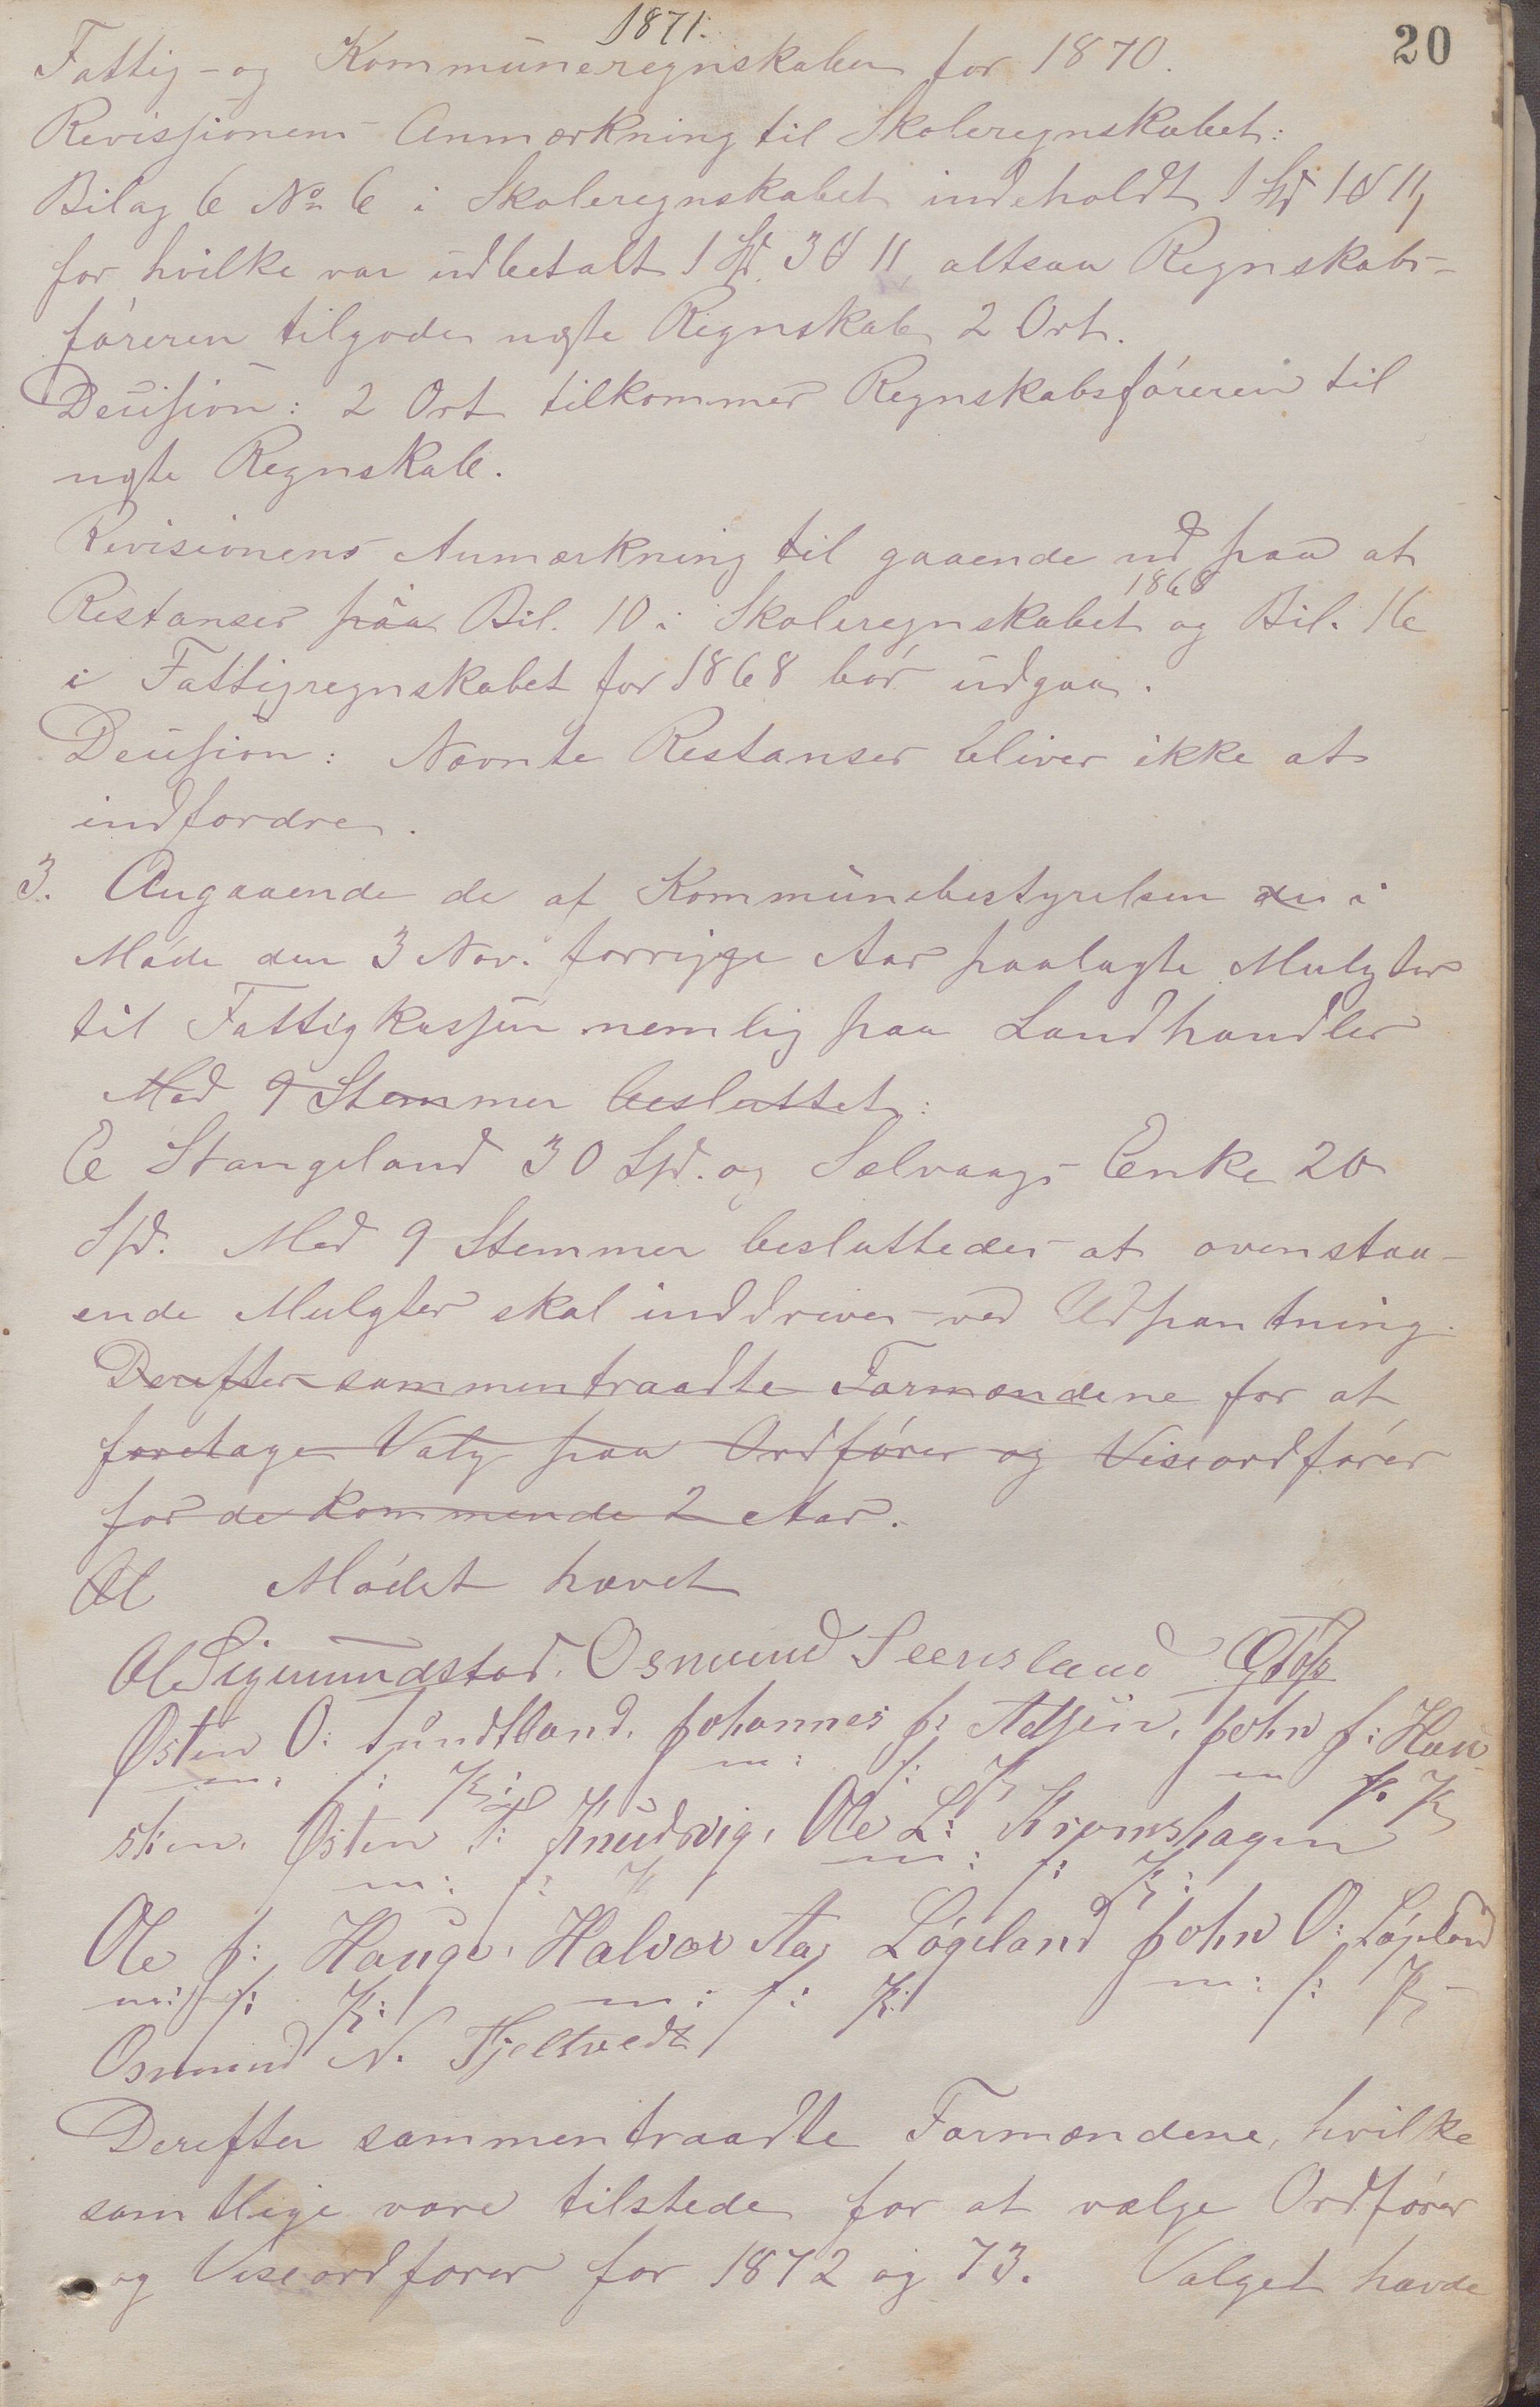 1871.
20
Fattig- og Kommuneregnskaber for 1870.
Revissionens Anmærkning til Skoleregnskabet:
Bilag 6 No 6 i Skoleregnskabet indeholdt 1 Spd 1 11
for hvilke var udbetalt 1 Spd. 3 11 altsaa Regnskabs-
føreren tilgode næste Regnskab 2 Ort.
Decision: 2 Ort tilkommer Regnskabsføreren til
næste Regnskab.
Revisionens Anmærkning til gaaende ud paa at
1868
Restanser paa Bil. 10 i Skoleregnskabet og Bil. 16
i Fattigregnskabet for 1868 bør udgaa.
Decision: Nævnte Restanser bliver ikke at
indfordre.
3. Angaaende de af Kommunebestyrelsen i
Møde den 3 Nov. forrige Aar paalagte Mulgter
til Fattigkassen nemlig paa Landhandler
Med 9 Stemmer besluttet:
E Stangeland 30 Spd. og Salvaags Enke 20
Spd. Med 9 Stemmer besluttedes at ovenstaa-
ende Mulgter skal inddrives ved Udpantning.
Derefter sammentraadte Formændene for at
foretage Valg paa Ordfører og Viseordfører
for de kommende 2 Aar.
Ol Mødet hævet
Ol Sigmundstad. Osmund Seensland
Østen O: Sundtland. Johannes J: Adsen. John J: Hau
m: f: P: m: f: P m f. P
sken. Østen T: Knudsvig. Ole L: Kromshagen
m: f: P m: f: P:
Ole J: Hauge. Halvor Aa. Løgeland John O: Løgeland
m: f: P: m: f: P: m: f: P
Osmund N. Fjeltvedt
Derefter sammentraadte Formændene, hvilke
samtlige vare tilstede for at vælge Ordfører
og Viseordfører for 1872 og 73. Valget havde